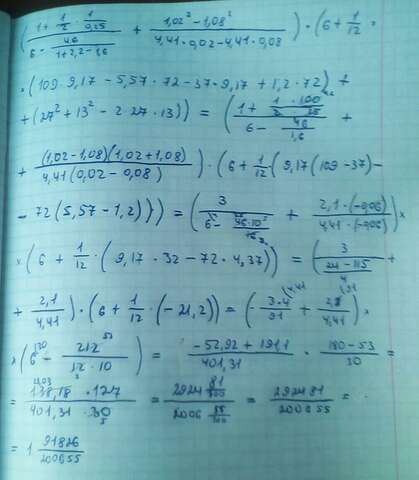 ( (1 + 1/2 · 1/0,25) / (6 - 46/(1+2,2-1,6)) + (1,02² - 1,08²) / (4,41·0,02 - 4,41·0,08) ) · (6 + 1/12 ×
× (109·9,17 - 5,57·72 - 37·9,17 + 1,2·72) +
+ (27² + 13² - 2·27·13)) = ( (1 + 1/2 · 100/25) / (6 - 46/1,6) +
+ (1,02 - 1,08)(1,02 + 1,08) / 4,41(0,02 - 0,08) ) · (6 + 1/12 (9,17(109 - 37) -
- 72(5,57 - 1,2))) = ( 3 / (6 - 46·10/16) + 2,1·(-0,06) / 4,41·(-0,06) ) ×
× (6 + 1/12 · (9,17·32 - 72·4,37)) = ( 3 / (24-115)/4 +
+ 2,1/4,41 ) · (6 + 1/12 · (-21,2)) = ( 3·4/91 + 2,1/4,41 ) ×
× (6 - 212/12·10) = (-52,92 + 191,1)/401,31 · (180 - 53)/30 =
= 138,18 · 127 / 401,31 · 30 = 2924 81/100 / 2006 55/100 = 292481/200655 =
= 1 91826/200655